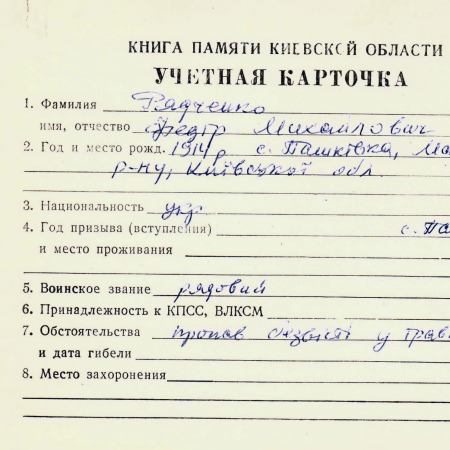 КНИГА ПАМЯТИ КИЕВСКОЙ ОБЛАСТИ
УЧЕТНАЯ КАРТОЧКА
1. Фамилия Радченко
имя, отчество Федір Михайлович
2. Год и место рожд. 1914 р с. Пашківка, Ма
р-ну, Київської обл.
3. Национальность укр
4. Год призыва (вступления) с. Па
и место проживания
5. Воинское звание рядовий
6. Принадлежность к КПСС, ВЛКСМ
7. Обстоятельства пропав безвісті у трав
и дата гибели
8. Место захоронения